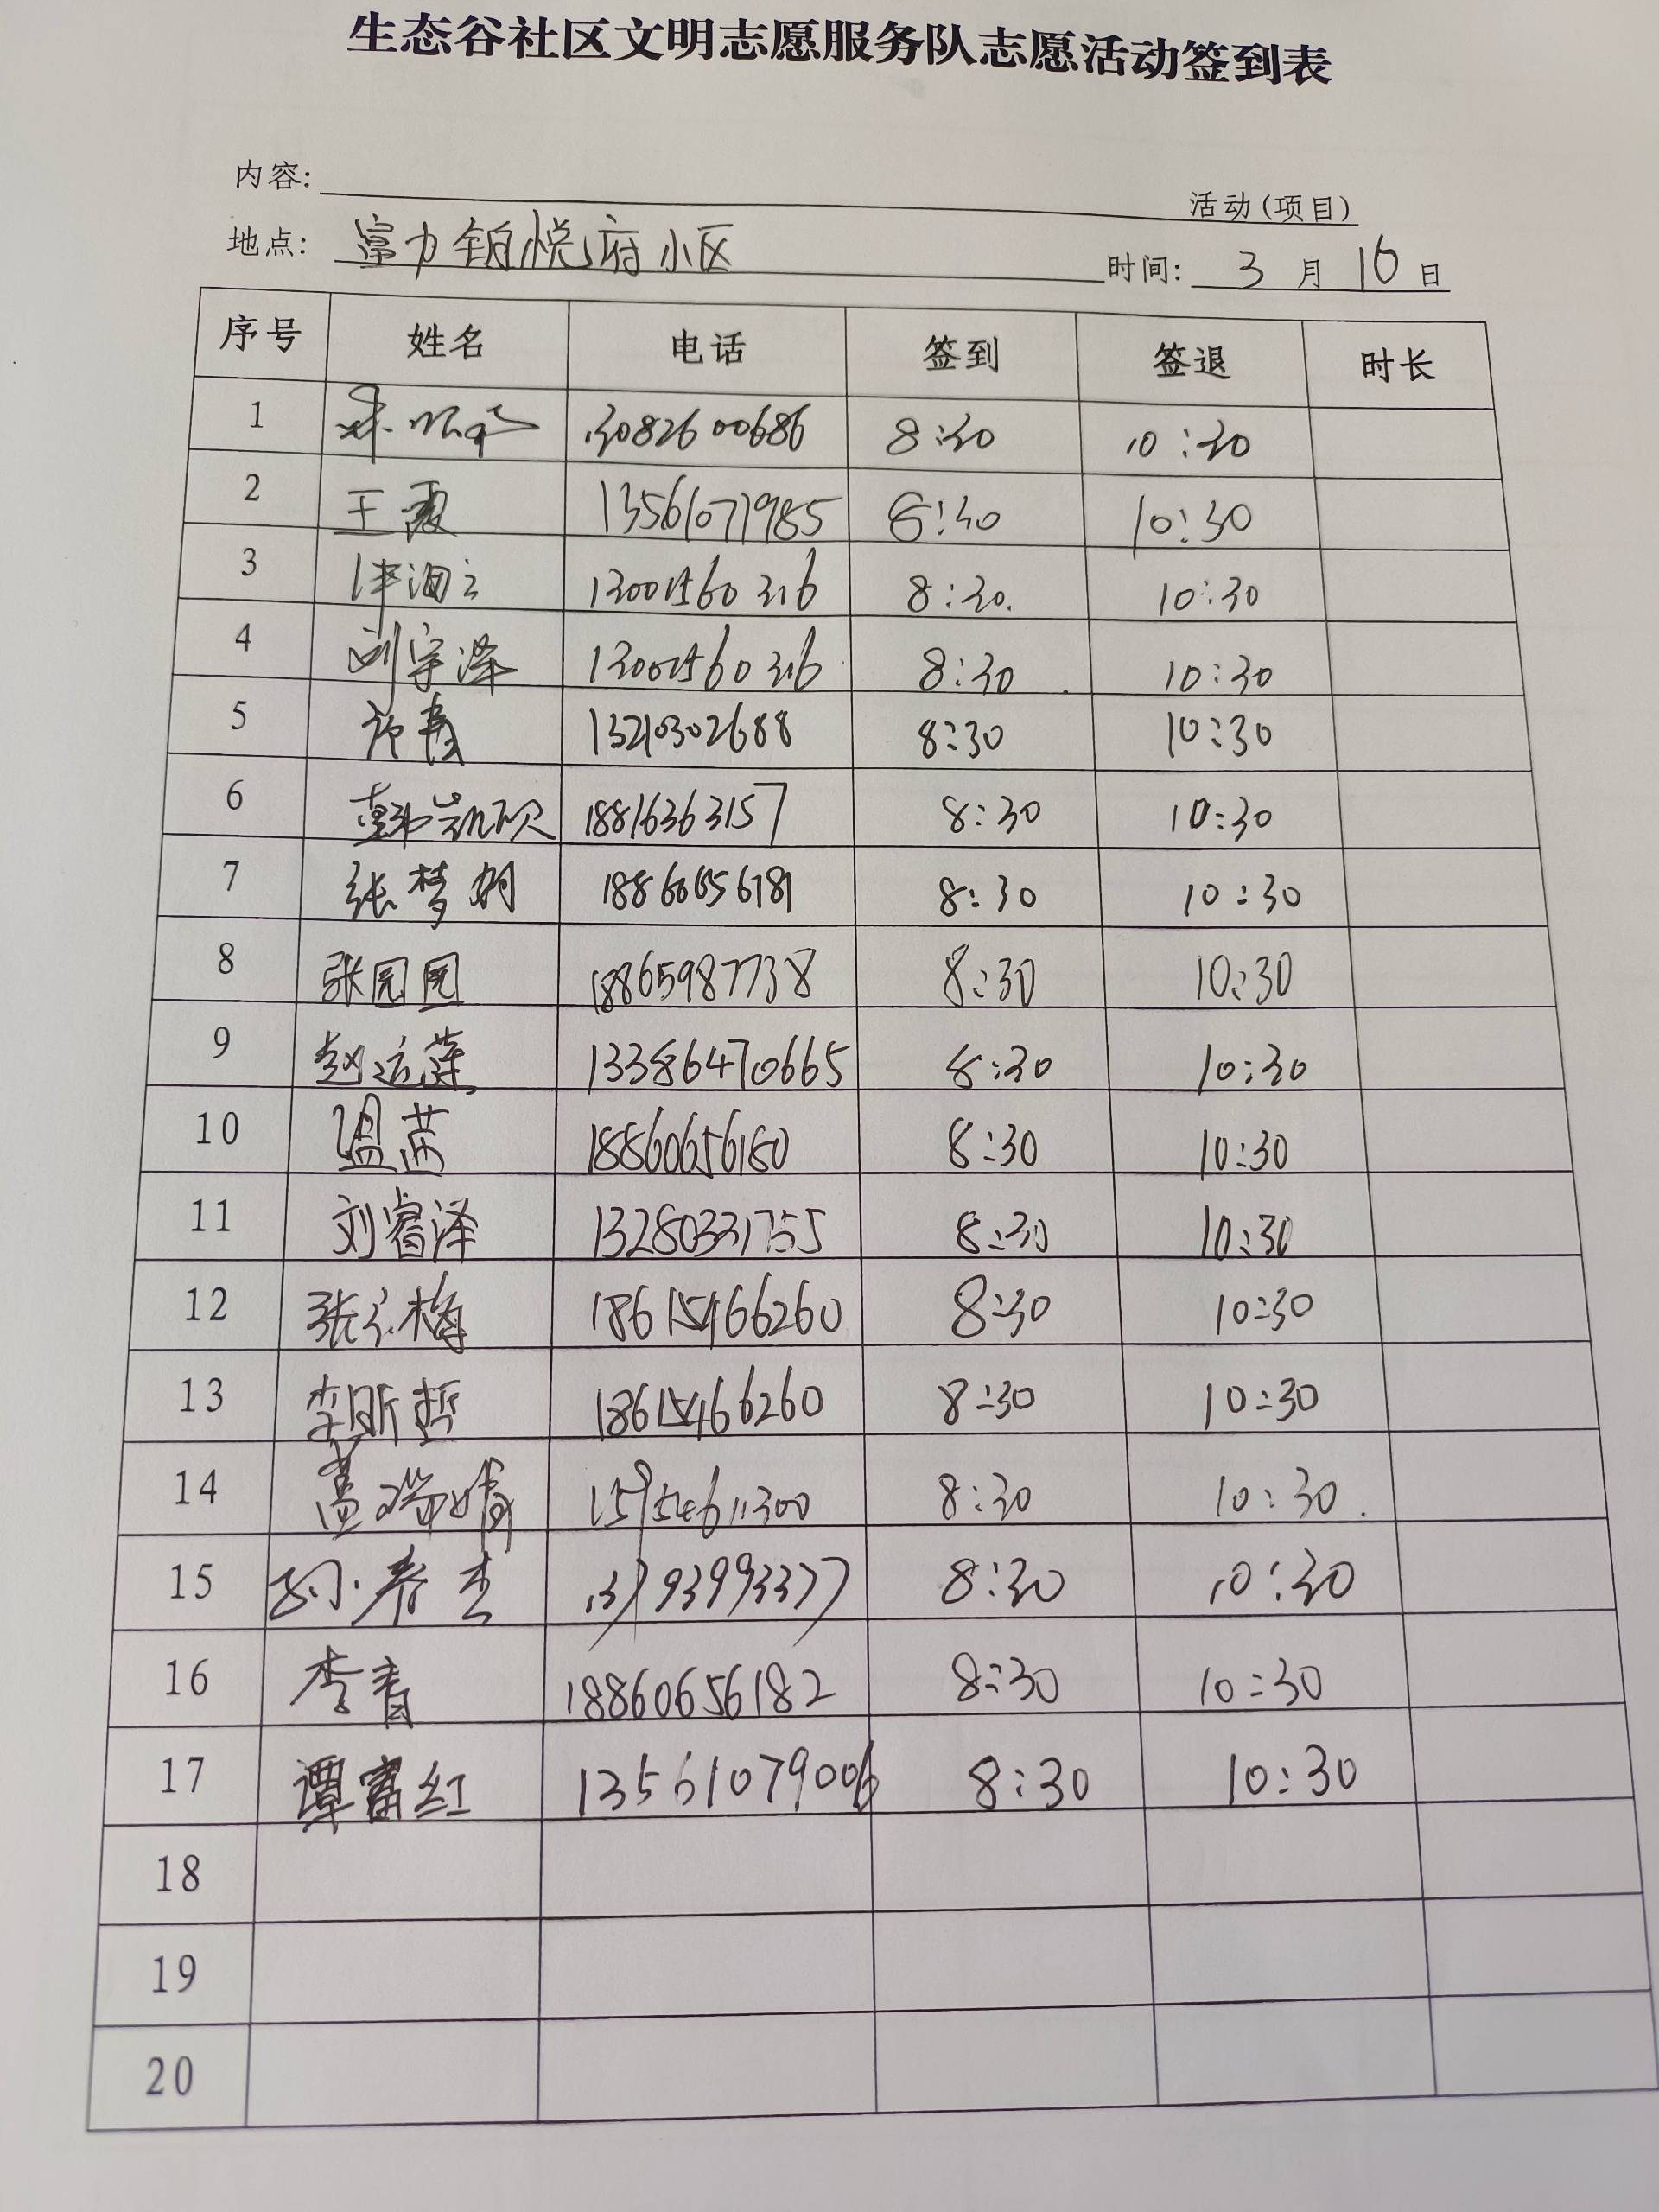 生态谷社区文明志愿服务队志愿活动签到表
内容: 活动(项目)
地点: 富力铂悦府小区 时间: 3月16日
序号 姓名 电话 签到 签退 时长
1 13082600686 8:30 10:30
2 王霞 13561071985 8:30 10:30
3 8:30. 10:30
4 刘宇泽 8:30 10:30
5 许青 13210302688 8:30 10:30
6 郭凯硕 18816363157 8:30 10:30
7 张梦娟 18860656181 8:30 10:30
8 张园园 18865987738 8:30 10:30
9 赵运莲 133864710665 8:30 10:30
10 温茜 18860656180 8:30 10:30
11 刘睿泽 13280331755 8:30 10:30
12 18615466260 8:30 10:30
13 李昕哲 18615466260 8:30 10:30
14 盖瑞婧 15954611300 8:30 10:30.
15 孙春杰 13793993377 8:30 10:30
16 李青 18860656182 8:30 10:30
17 谭富红 13561079006 8:30 10:30
18
19
20